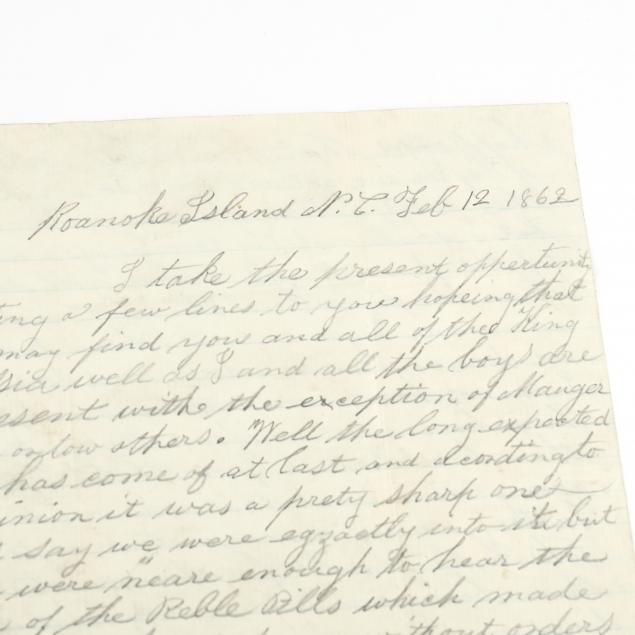 Roanoke Island N. C. Feb 12 1862
I take the present opportunit
ting a few lines to you hopeing that
may find you and all of the King
sia well as I and all the boys are
esent with the exception of Mauger
or tow others. Well the long expected
has come of at last and acording to
inion it was a prety sharp one
say we were egzactly into it but
were neare enough to hear the
of the Reble Pills which made
without orders